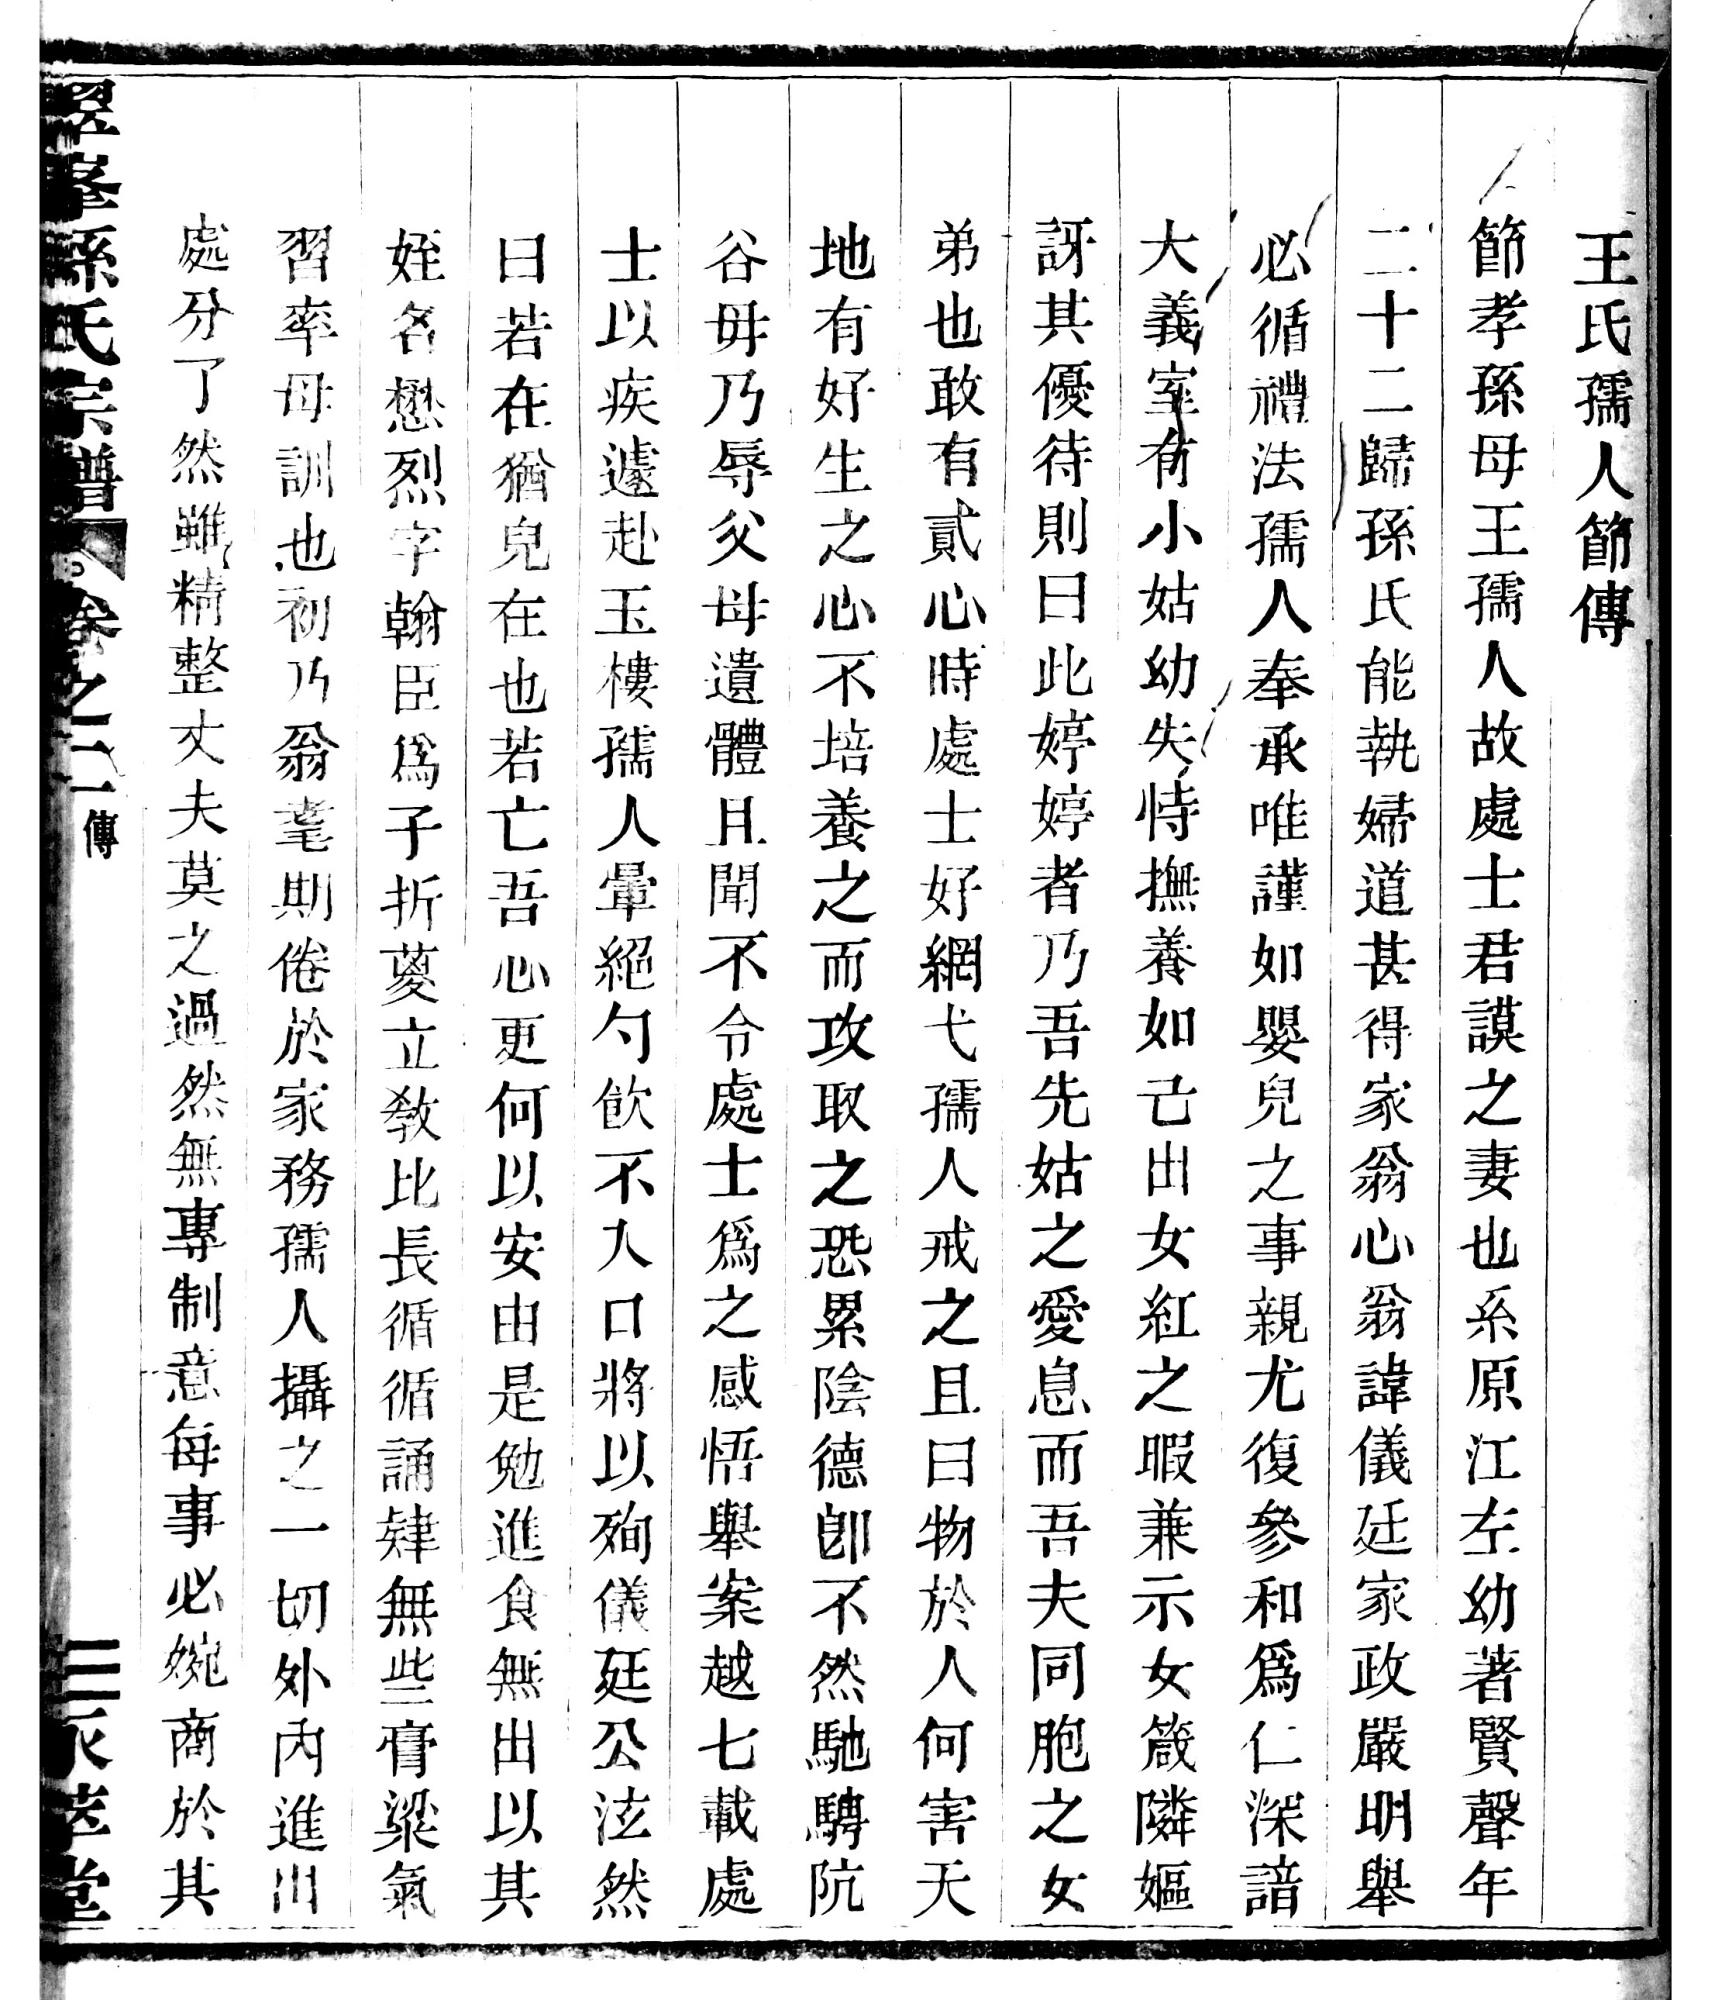 王氏孺人節傳
節孝孫母王孺人故處士君謨之妻也系原江左幼著賢聲年
二十二歸孫氏能執婦道甚得家翁心翁諱儀廷家政嚴明舉
必循禮法孺人奉承唯謹如嬰兒之事親尤復參和爲仁深諳
大義室有小姑幼失恃撫養如己出女紅之暇兼示女箴隣嫗
訝其優待則曰此婷婷者乃吾先姑之愛息而吾夫同胞之女
弟也敢有貳心時處士好網弋孺人戒之且曰物於人何害天
地有好生之心不培養之而攻取之恐累陰德卽不然馳騁阬
谷毋乃辱父母遺體且聞不令處士爲之感悟舉案越七載處
士以疾遽赴玉樓孺人暈絕勺飲不入口將以殉儀廷公泫然
曰若在猶兒在也若亡吾心更何以安由是勉進食無出以其
姪名懋烈字翰臣爲子折葼立教比長循循誦肄無些膏粱氣
習率母訓也初乃翁耄期倦於家務孺人攝之一切外內進出
處分了然雖精整丈夫莫之過然無專制意每事必婉商於其
翠峯孫氏宗譜 卷之二 傳 三 永萃堂